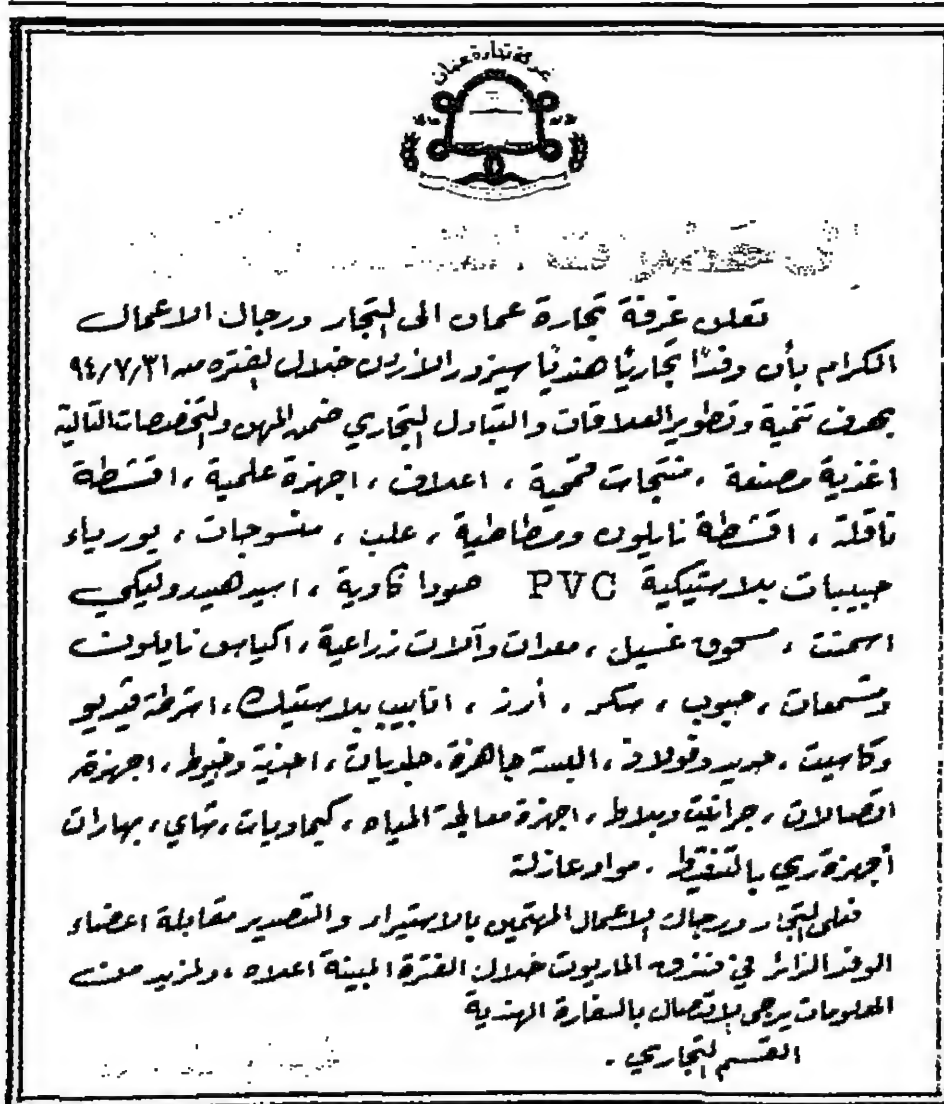 غرفة تجارة عمان
تعلن غرفة تجارة عمان الى التجار ورجال الاعمال
الكرام بأن وفدًا تجاريًا هنديًا سيزور الأردن خلال الفترة من ٩٤/٧/٣١
بهدف تنمية وتطوير العلاقات والتبادل التجاري ضمن المهن والتخصصات التالية
اغذية مصنعة ، منتجات قمحية ، اعلاف ، اجهزة علمية ، اقشطة
ناقلة ، اقشطة نايلون ومطاطية ، علب ، منسوجات ، يورياء
حبيبات بلاستيكية PVC صودا كاوية ، اسيد هيدروليكي
اسمنت ، مسحوق غسيل ، معدات وآلات زراعية ، اكياس نايلون
ومشمعات ، حبوب ، سكر ، أرز ، انابيب بلاستيك ، اشرطة فيديو
وكاسيت ، حديد وفولاذ ، البسة جاهزة ، جلديات ، احذية وخيوط ، اجهزة
اتصالات ، جرانيت وبلاط ، اجهزة معالجة المياه ، كيماويات ، شاي ، بهارات
أجهزة ري بالتنقيط ، مواد عازلة
فعلى التجار ورجال الاعمال المهتمين بالاستيراد والتصدير مقابلة اعضاء
الوفد الزائر في فندق الماريوت خلال الفترة المبينة اعلاه ، ولمزيد من
المعلومات يرجى الاتصال بالسفارة الهندية
القسم التجاري .